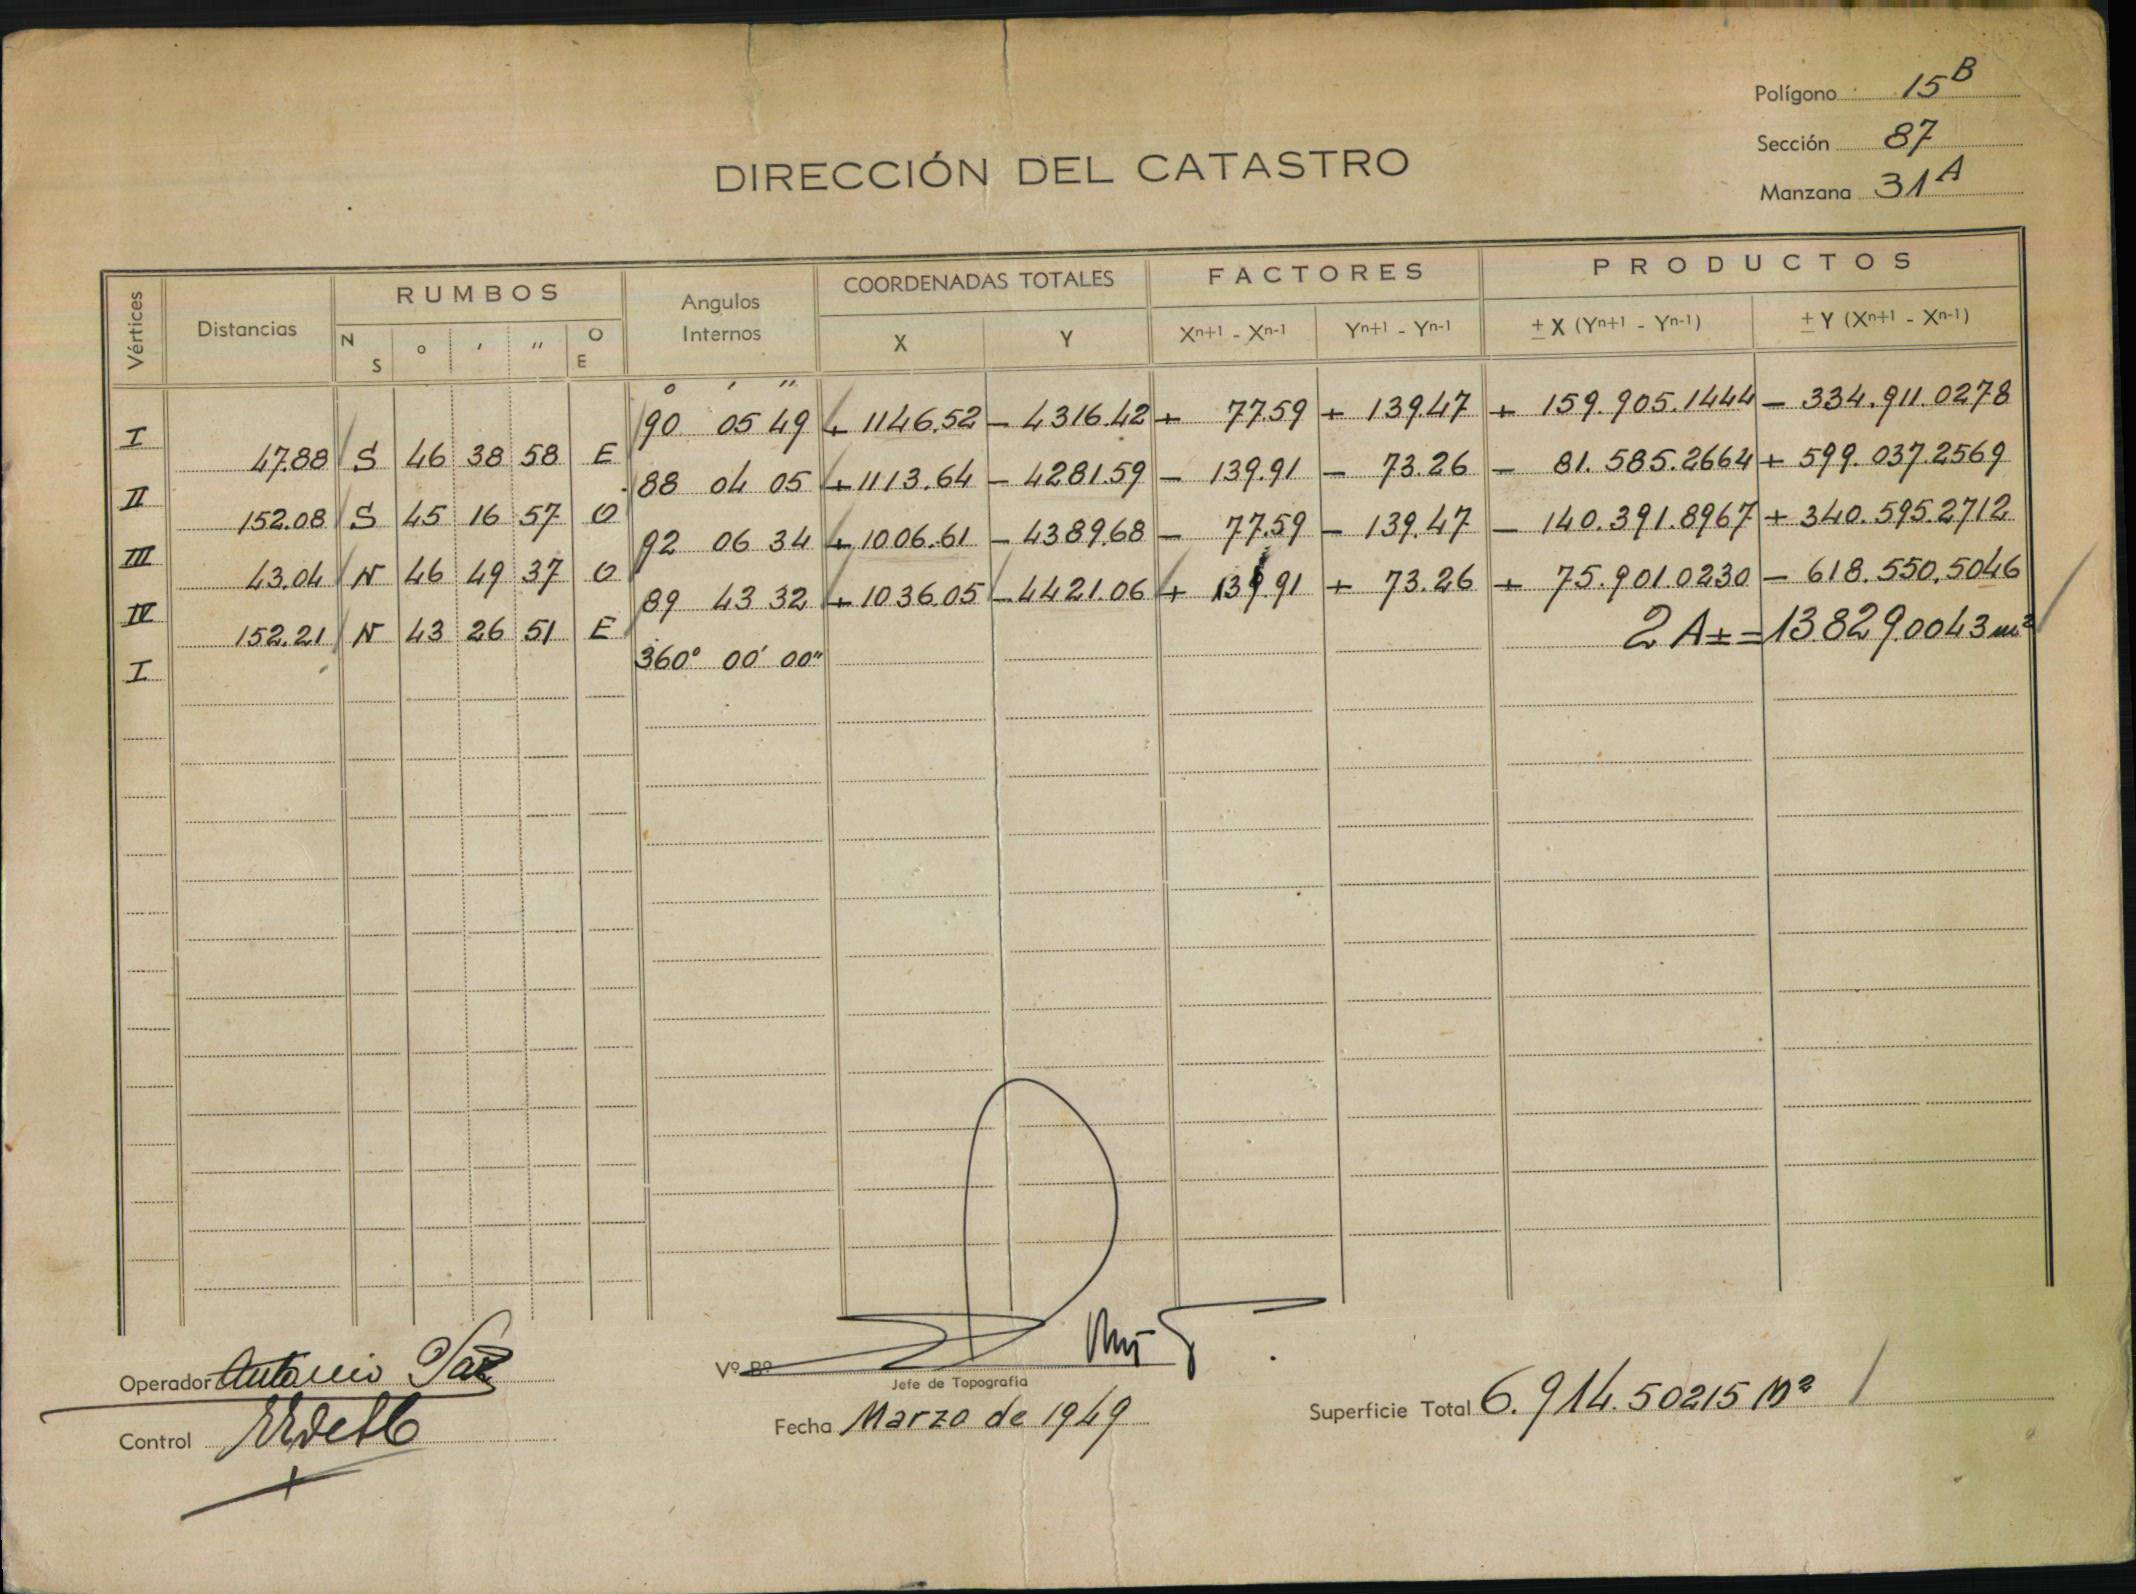 Polígono 15 B
Sección 87
DIRECCIÓN DEL CATASTRO
Manzana 31 A
Vértices Distancias RUMBOS Angulos Internos COORDENADAS TOTALES FACTORES PRODUCTOS
N S o ' " O E X Y Xn+1 - Xn-1 Yn+1 - Yn-1 ± X (Yn+1 - Yn-1) ± Y (Xn+1 - Xn-1)
o ' "
I 90 05 49 + 1146.52 - 4316.42 + 77.59 + 139.47 + 159.905.1444 - 334.911.0278
47.88 S 46 38 58 E
II 88 04 05 + 1113.64 - 4281.59 - 139.91 - 73.26 - 81.585.2664 + 599.037.2569
152.08 S 45 16 57 O
III 92 06 34 + 1006.61 - 4389.68 - 77.59 - 139.47 - 140.391.8967 + 340.595.2712
43.04 N 46 49 37 O
IV 89 43 32 + 1036.05 - 4421.06 + 139.91 + 73.26 + 75.901.0230 - 618.550.5046
152.21 N 43 26 51 E
2 A ± = 13.829.0043 m²
I 360° 00' 00"
Operador Antonio
Vº Bº
Jefe de Topografia
Control
Fecha Marzo de 1949
Superficie Total 6.914.50215 M²